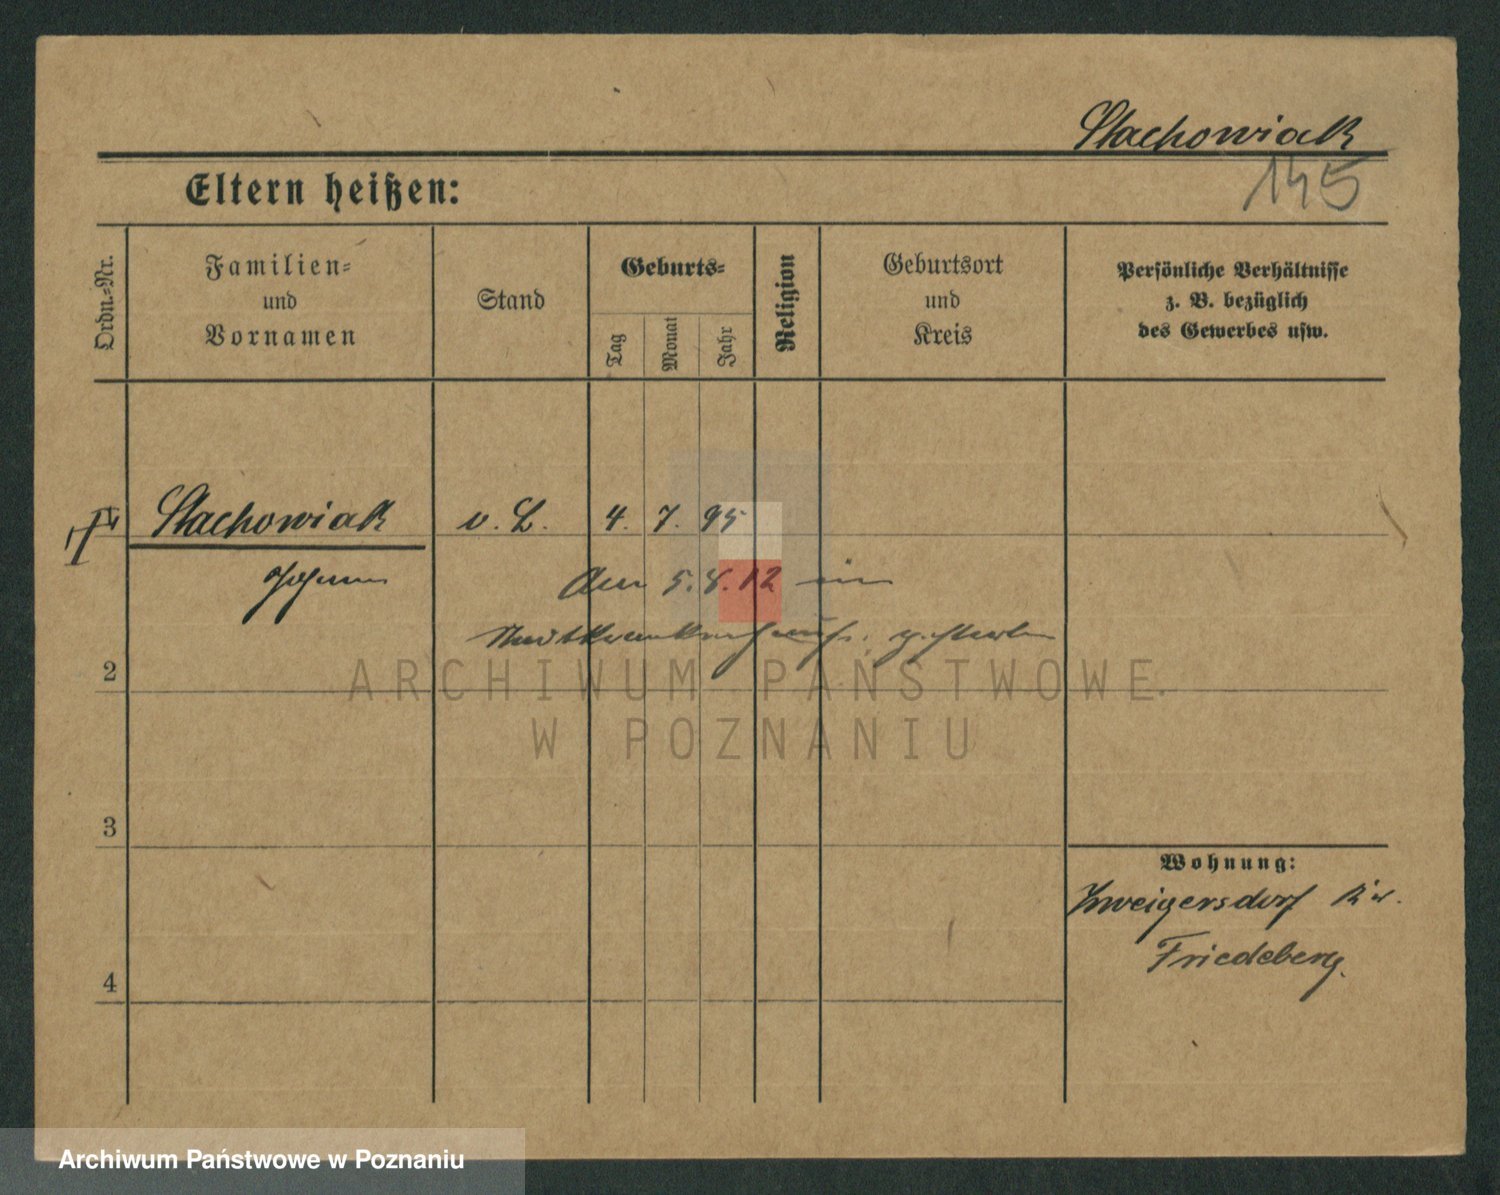 Stachowiak
145
Eltern heißen:
Ordn.-Nr.
Familien-
und
Vornamen
Stand
Geburts-
Tag
Monat
Jahr
Religion
Geburtsort
und
Kreis
Persönliche Verhältnisse
z. B. bezüglich
des Gewerbes usw.
Stachowiak v. L. 4. 7. 95
Johann Am 5. 8. 12 im
Stadtkrankenhause gestorben
ARCHIWUM PAŃSTWOWE
W POZNANIU
2
3
Wohnung:
Zweigersdorf Kr.
Friedeberg.
4
Archiwum Państwowe w Poznaniu